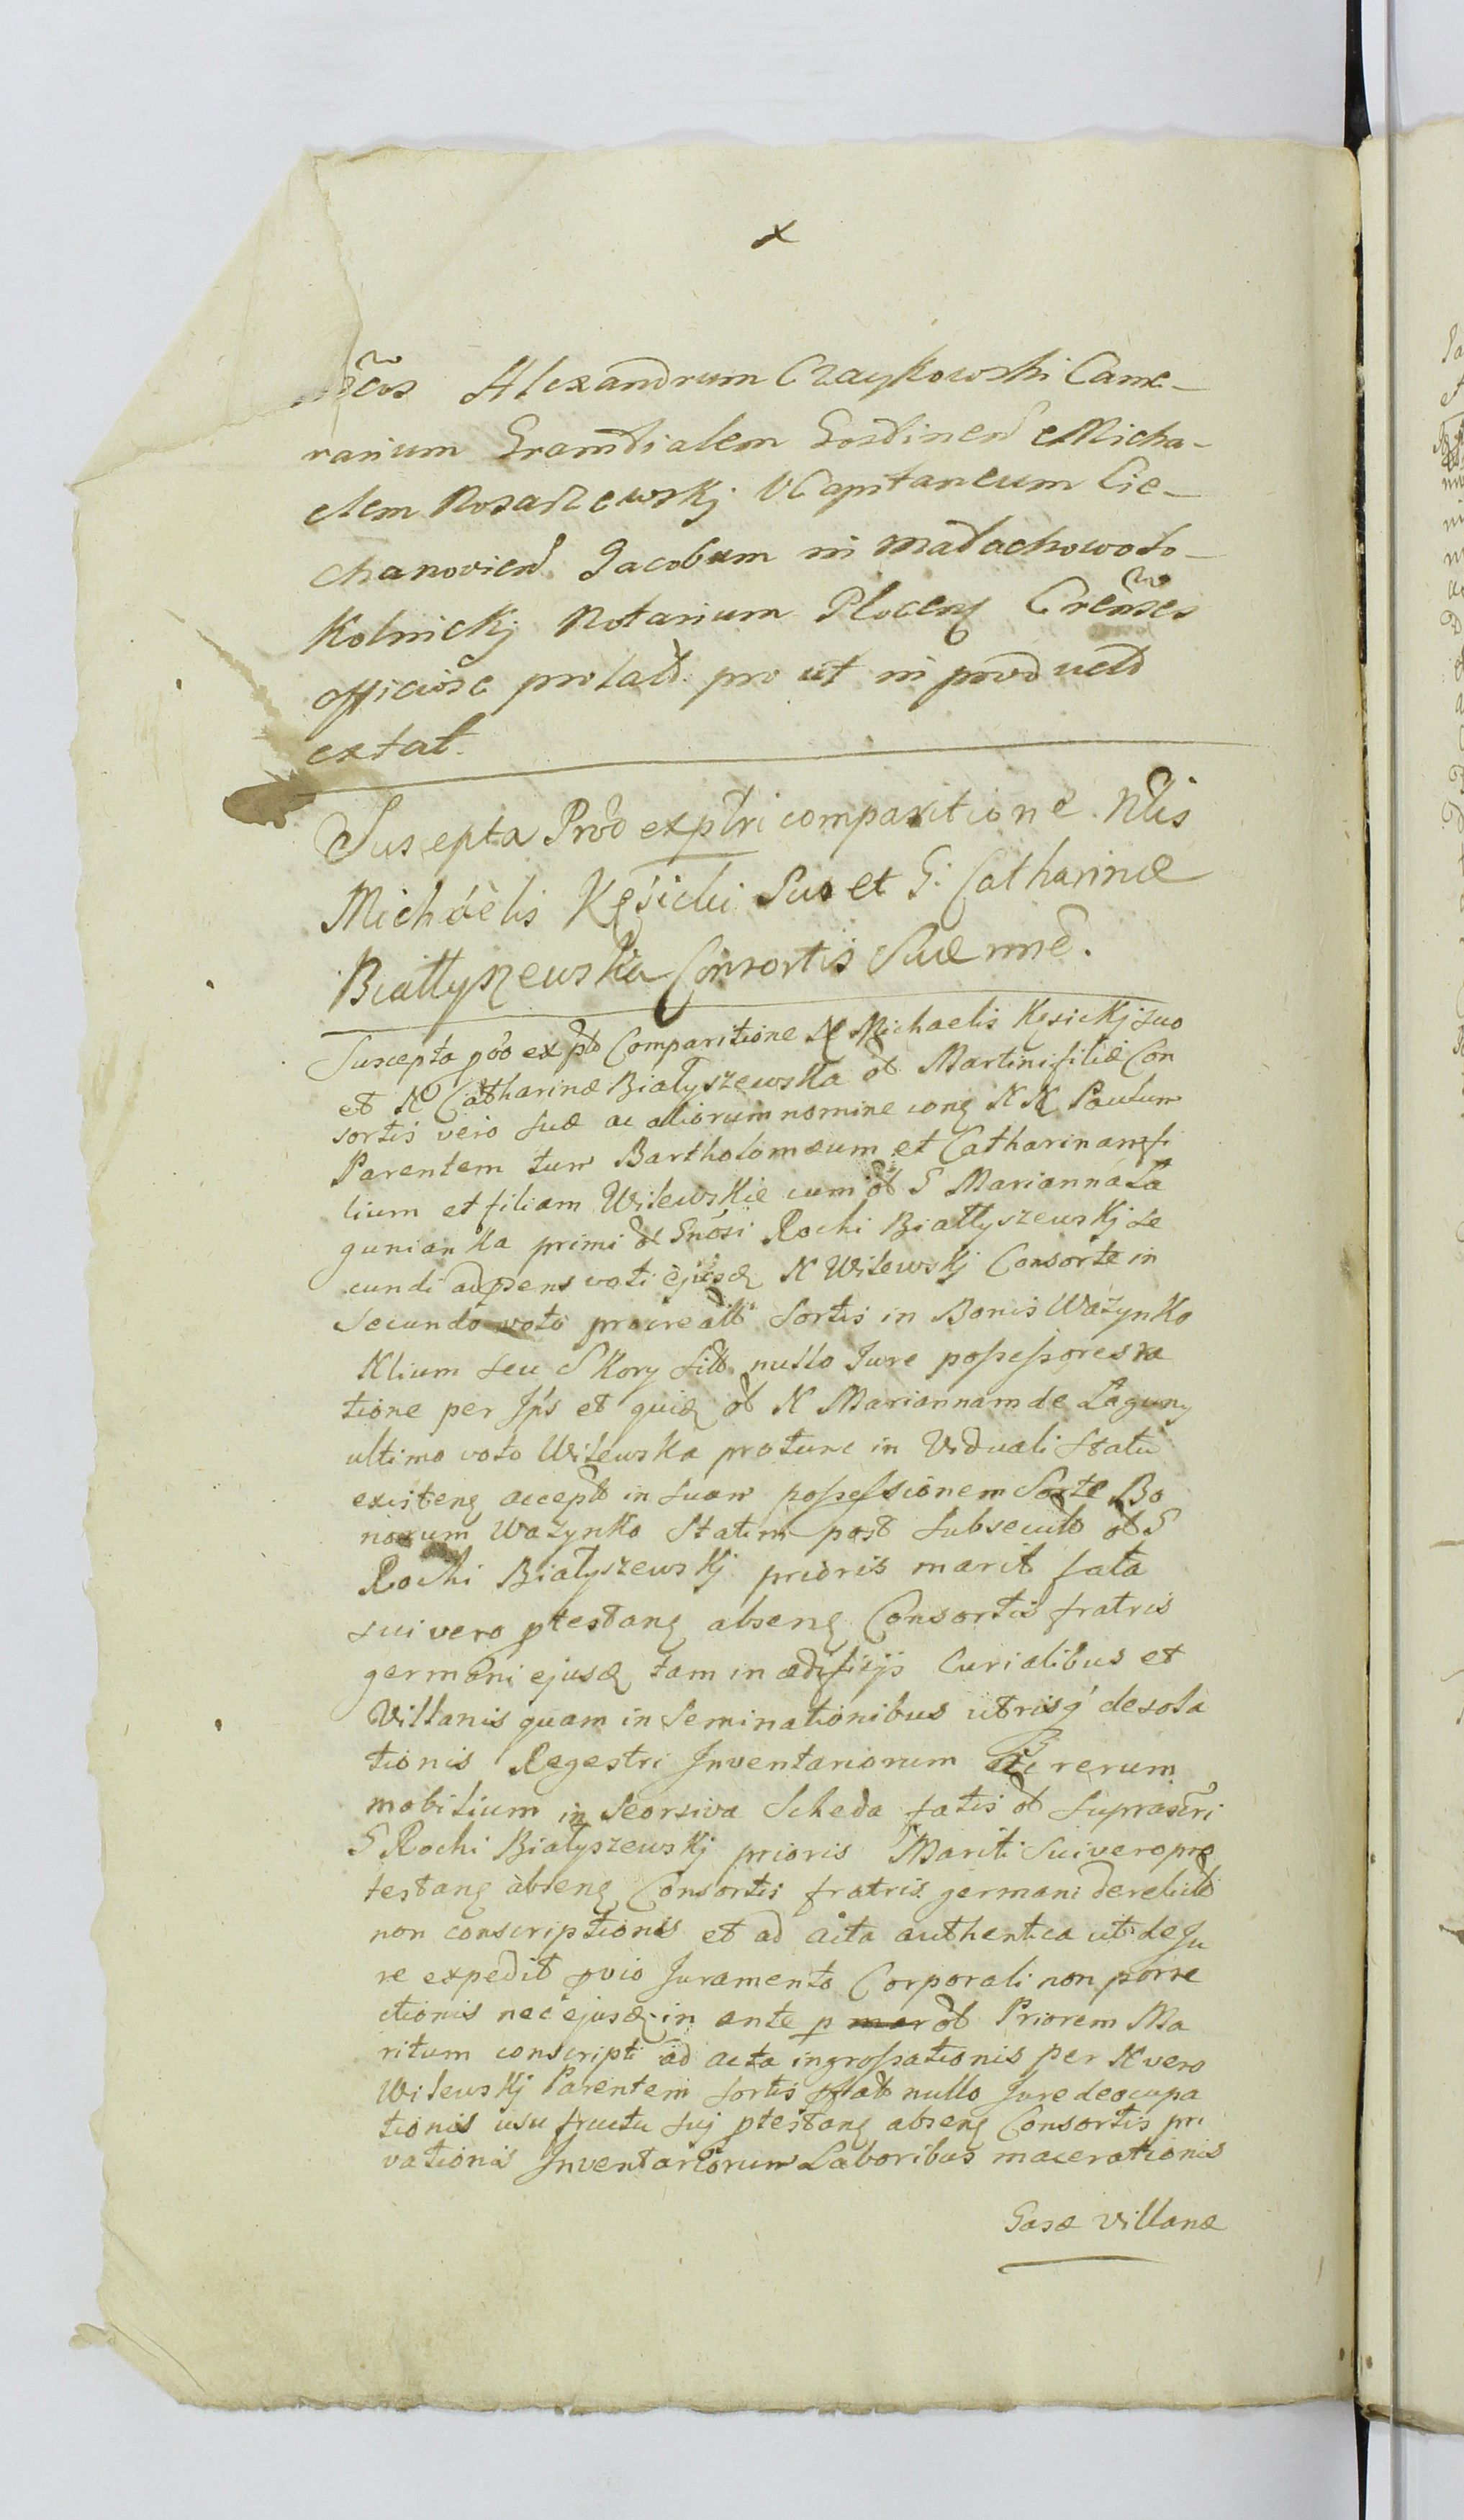 x
Alexandrum Czaykowski Came-
rarium Granitialem Gostinens Micha-
elem Rosaszewskj VCapitaneum Cie-
chanoviens Jacobum in Małachowoto-
Kolnickj Notarium Plocens Crenses
officiose prolat. pro ut in product
extat.
Suscepta Prod exptri comparitione Nlis
Michaelis Kęsicki Suo et G. Catharinæ
Białłyszewska Consortis Suæ nne.
Suscepta pod ex pt Comparitione N Michaelis Kęsickj suo
et N Catharinæ Białyszewska ol Martini filiæ Con
sortis vero suæ ac aliorum nomine cong N N Paulum
Parentem tum Bartholomæum et Catharinam fi
lium et filiam Wilewskie cum ol G Marianna Ła
gunianka primi ol Gnosi Rochi Białłyszewskj se
cundi adpsens voti ejusd N Wilewskj Consorte in
Secundo voto procreatt Sortis in Bonis Ważynko
Klium seu Skory sitt nullo Jure possessores ra
tione per Jps et quid ol N Mariannam de Łaguny
ultimo voto Wilewska protunc in Viduali statu
existeng accept in suam possessionem Sorte Bo
norum Ważynko Statim post subsecut ol G
Rochi Białyszewskj prioris marit fata
sui vero ptestang abseng Consortis fratris
germani ejusd tam in ædificijs Curialibus et
Villanis quam in Seminationibus utrisq desola
tionis Regestri Inventariorum rerum
mobilium in Seorsiva Scheda fatis ol suprascri
G Rochi Białyszewskj prioris Mariti Sui vero pro
testang abseng Consortis fratris germani derelict
non conscriptionis et ad acta authentica uti de Ju
re expedit pvio Juramento Corporali non porre
ctionis nec ejusd in ante p ol Priorem Ma
ritum conscripti ad acta ingrossationis per N vero
Wilewskj Parentem sortis nullo Jure deocupa
tionis usu fructu suj ptestang abseng Consortis pri
vationis Inventariorum Laboribus macerationis
Casæ Villanæ